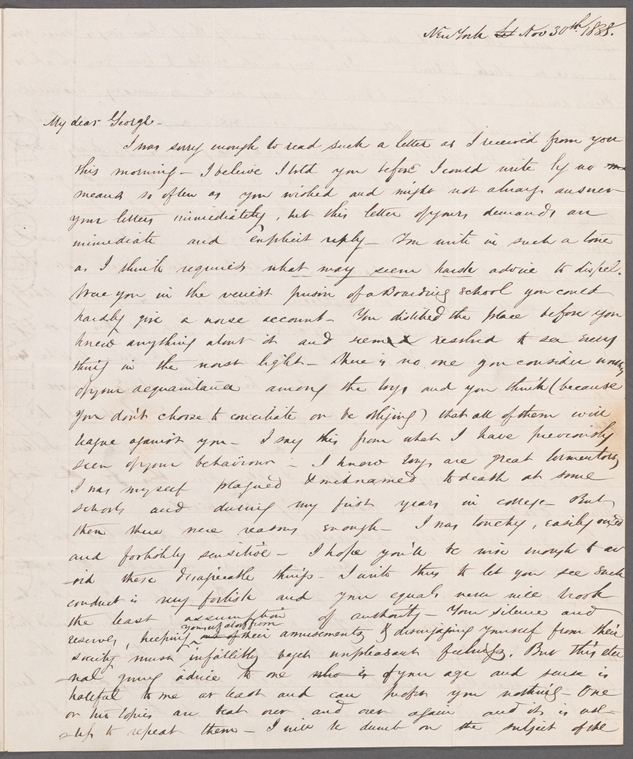 New York Nov 30th /1838.
My dear George-
I was sorry enough to read such a letter as I received from you
this morning - I believe I told you before I could write by no
means so often as you wished and might not always answer
your letters immediately, but this letter of yours demands an
immediate and explicit reply - You write in such a tone
as I think requires what may seem harsh advice to dispel.
Were you in the veriest prison of a Boarding school you could
hardly give a worse account - You disliked the place before you
knew anything about it and seem resolved to see every
thing in the worst light - There is no one you consider worthy
of your acquaintance among the boys and you think (because
you don't choose to conciliate or be obliging) that all of them will
league against you - I say this from what I have previously
seen of your behaviour - I know boys are great tormentors
I was myself plagued & nicknamed to death at some
schools and during my first years in college - But
then there were reasons enough - I was touchy, easily
and foolishly sensitive - I hope you'll be wise enough to av
-oid these disagreeable things - I write thus to let you see such
conduct is very foolish and your equals never will brook
the least assumption of authority - Your silence and
reserve, keeping yourself aloof from their amusements & disengaging yourself from their
society must infallibly beget unpleasant feelings. But this eter
-nal giving advice to one of your age and sense is
hateful to me at least and can profit you nothing - One
or two topics are beat over and over again and it is
to repeat them - I will be dumb on the subject of the